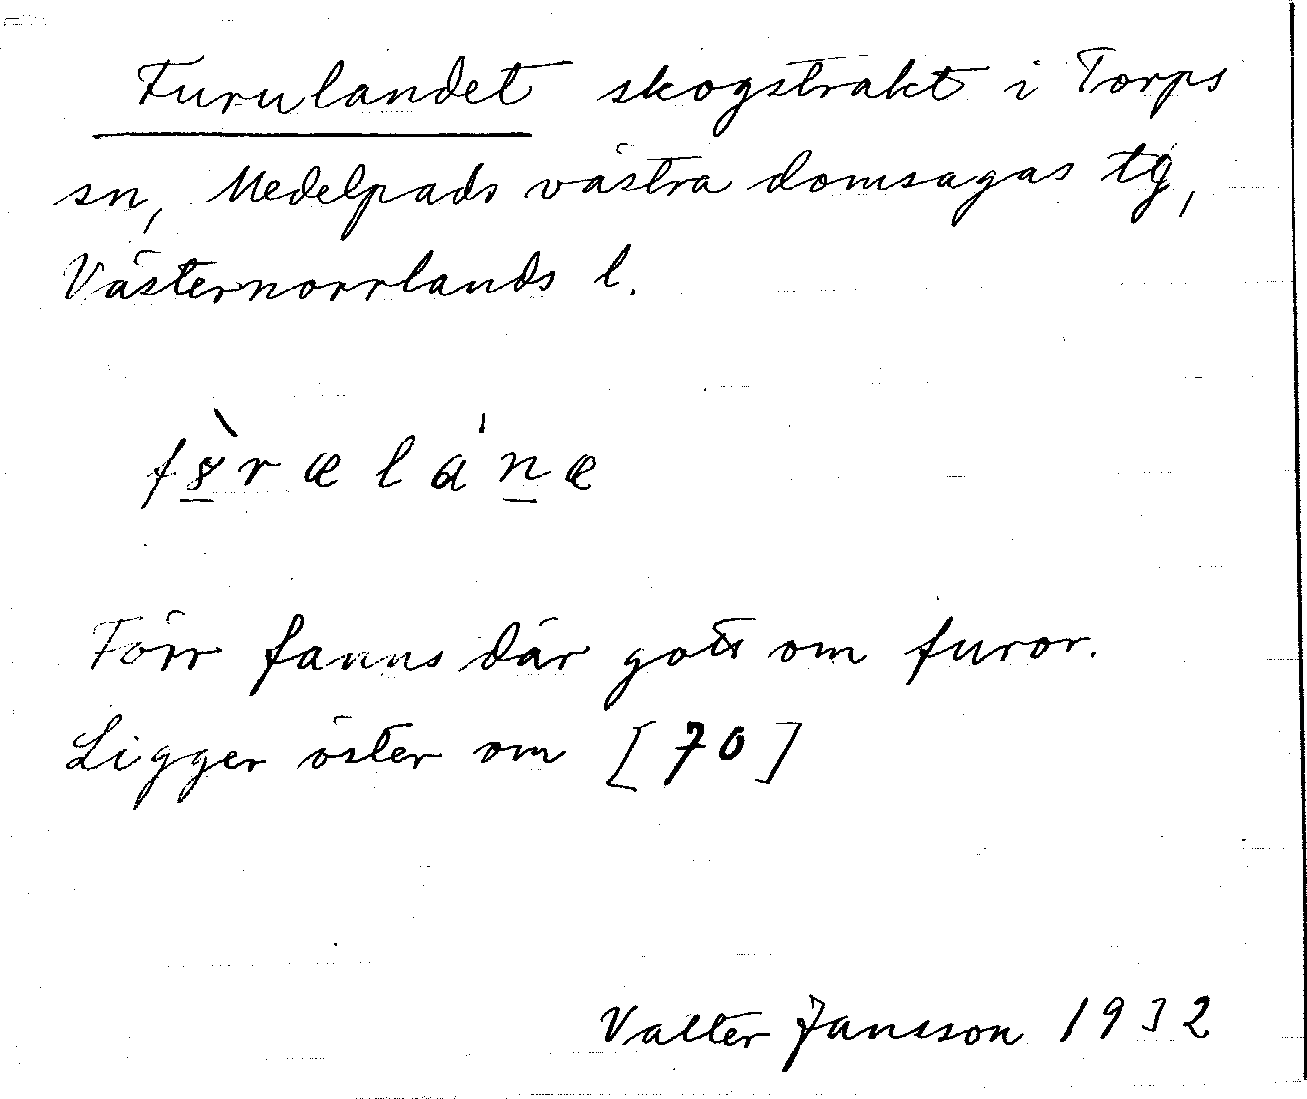 Furulandet skogstrakt i Torps
sn, Medelpads västra domsagas tg,
Västernorrlands l.
Förr fanns där gott om furor.
Ligger öster om [70]
Valter Jansson 1932